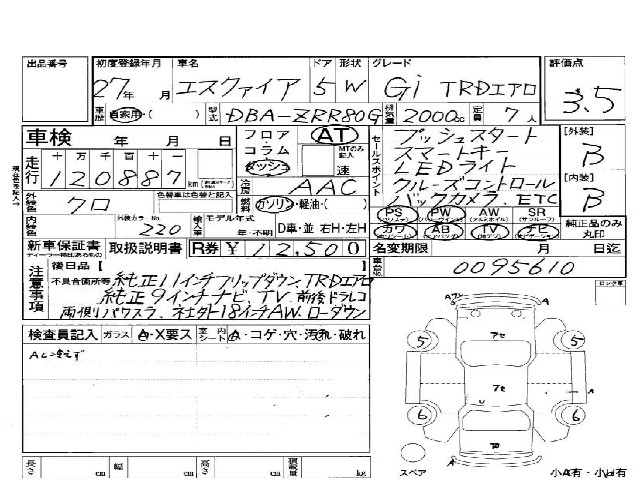 出品番号 初度登録年月 車名 ドア 形状 グレード 評価点
27年 月 エスクァイア 5 W Gi TRDエアロ 3.5
車歴 自家用・( ) 型式 DBA-ZRR80G 排気量 2000cc 定員 7人
車検 年 月 日
フロア AT
コラム MTのみ記入
ダッシュ 速
セールスポイント
プッシュスタート
スマートキー
LEDライト
クルーズコントロール
バックカメラ、ETC
[外装] B
[内装] B
走行 十 万 千 百 十 一
120887 km
外装色 クロ 色替車は色替と記入
冷房 AAC
燃料 ガソリン・軽油・( )
内装色 外装カラーNo. 220
輸入車 モデル年式 年・不明 D車・並 右H・左H
PS PW AW SR
カワ AB TV ナビ
純正品のみ丸印
新車保証書 取扱説明書 R券 ¥12,500
名変期限 月 日迄
車台No. 0095610
注意事項
後日品 [ ]
不具合箇所等
純正11インチフリップダウン、TRDエアロ
純正9インチナビ、TV 前後ドラレコ
両側パワスラ、18インチAW、ローダウン
検査員記入 ガラス A・X要ス 室内シート A・コゲ・穴・汚れ・破れ
AC冷えず
長さ cm 幅 cm 高さ cm 積載量 kg
5 5
6 6
アセ
アセ
スペア
小A有・小U有